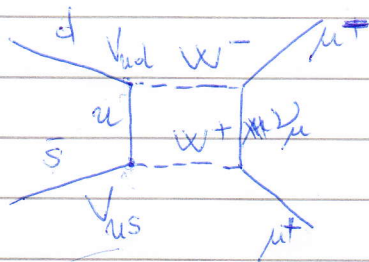 d V_ud W⁻ μ
u W⁺ ν_μ
s̄
V_us μ⁺